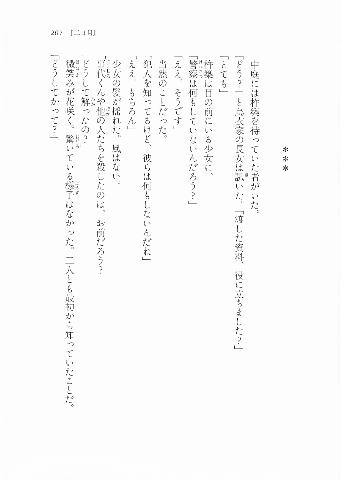 ＊＊＊
中庭には柞葉を待っていた者がいた。
「どう？」と烏衣家の長女は訊いた。「渡した資料、役に立ちました？」
「とても」
柞葉は目の前にいる少女に、
「警察は何もしていないんだろう？」
「ええ、そうです」
当然のことだった。
「犯人を知ってるけど、彼らは何もしないんだね」
「ええ、もちろん」
少女の髪が揺れた。風はない。
代くんや他の人たちを殺したのは、お前だろう？
どうして解ったの？
微笑みが花咲く。驚いている様子はなかった。二人とも最初から知っていたことだ。
「どうしてかって？」